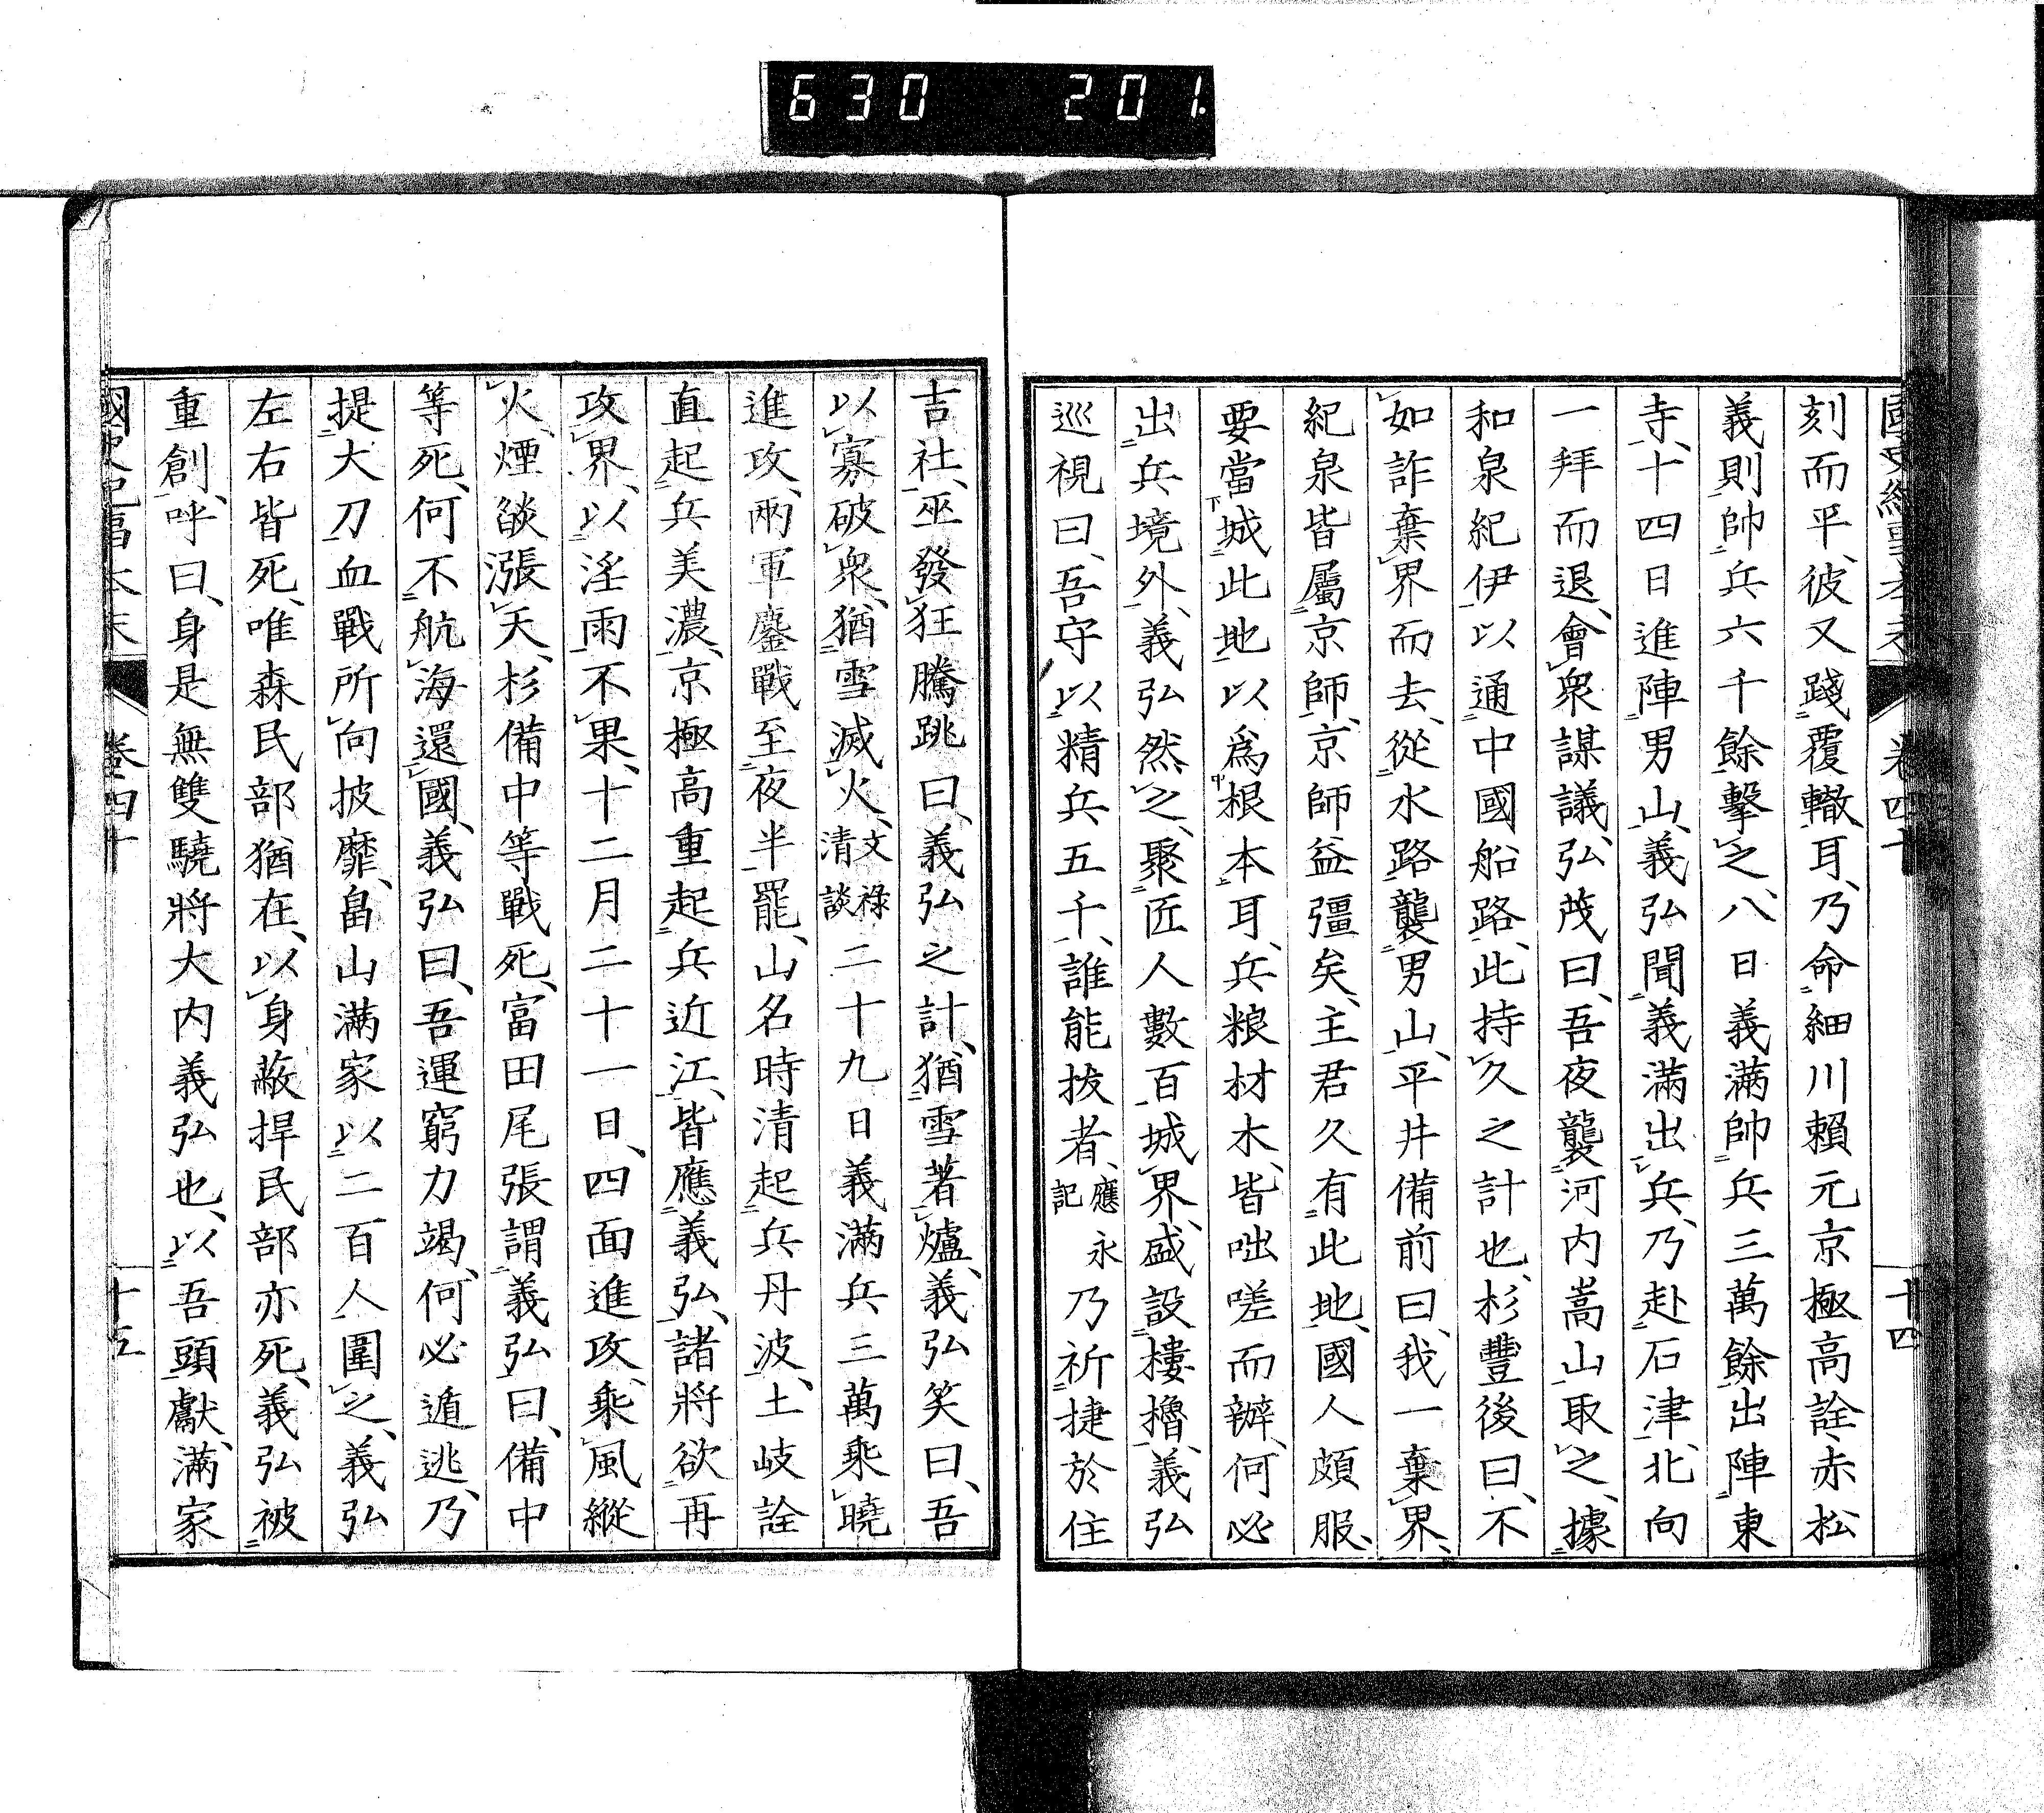 630 201
國史紀事本末 卷四十 十四
刻而平、彼又踐覆轍耳、乃命細川賴元京極高詮赤松
義則帥兵六千餘擊之、八日義滿帥兵三萬餘出陣東
寺、十四日進陣男山、義弘聞義滿出兵、乃赴石津、北向
一拜而退、會衆謀議、弘茂曰、吾夜襲河内嵩山取之、據
和泉紀伊以通中國船路、此持久之計也、杉豐後曰、不
如詐棄界而去、從水路襲男山、平井備前曰、我一棄界、
紀泉皆屬京師、京師益彊矣、主君久有此地、國人頗服、
要當城此地以爲根本耳、兵粮材木、皆咄嗟而辦、何必
出兵境外、義弘然之、聚匠人數百城界、盛設樓擼、義弘
巡視曰、吾守以精兵五千、誰能拔者、應永記乃祈捷於住
吉社、巫發狂騰跳曰、義弘之計、猶雪著爐、義弘笑曰、吾
以寡破衆、猶雪滅火、文祿清談二十九日義滿兵三萬乘曉
進攻、兩軍鏖戰至夜半罷、山名時清起兵丹波、土岐詮
直起兵美濃、京極高重起兵近江、皆應義弘、諸將欲再
攻界、以淫雨不果、十二月二十一日、四面進攻、乘風縱
火、煙燄漲天、杉備中等戰死、富田尾張謂義弘曰、備中
等死、何不航海還國、義弘曰、吾運窮力竭、何必遁逃、乃
提大刀血戰所向披靡、畠山滿家以二百人圍之、義弘
左右皆死、唯森民部猶在、以身蔽捍民部亦死、義弘被
重創、呼曰、身是無雙驍將大内義弘也、以吾頭獻、滿家
國史紀事本末 卷四十 十五